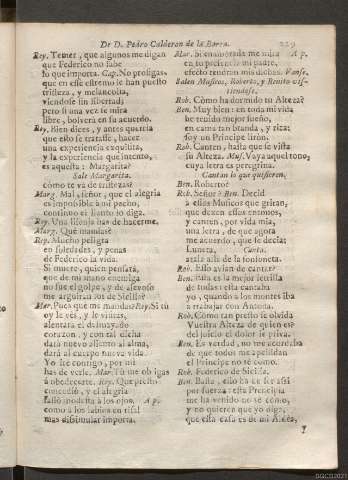 De D. Pedro Calderon de la Barca. 229
Rey. Temer, que algunos me digan
que Federico no sabe
lo que importa. Cap. No prosigas,
que en esse estremo le han puesto
tristeza, y melancolia,
viendose sin libertad;
pero si una vez se mira
libre, bolverà en su acuerdo.
Rey. Bien dices, y antes querria
que esto se tratasse, hacer
una experiencia exquisita,
y la experiencia que intento,
es aquesta: Margarita?
Sale Margarita.
còmo te va de tristezas?
Marg. Mal, señor, que el alegria
es impossible à mi pecho,
continuo el llanto lo diga.
Rey. Una fineza has de hacerme.
Marg. Què mandas?
Rey. Mucho peligra
en soledades, y penas
de Federico la vida.
Si muere, quien pensarà,
que de mi mano enemiga
no fue el golpe, y de alevoso
me arguiràn los de Sicilia?
Mar. Pues què me mandas? Rey. Si tù
oy le vès, y le visitas,
alentarà el desmayado
corazon, y con tal dicha
darà nuevo aliento al alma,
darà al cuerpo nueva vida.
Yo ire contigo, por mi
has de verle. Mar. Tù me obligas
à obedecerte. Rey. Que presto
concediò, y el alegria
saliò modesta à los ojos, A p.
como à los labios en risa!
mas dissimular importa.
Mar. Si enamorada me mira A p.
en su presencia mi padre,
efecto tendràn mis dichas. Vanse.
Salen Musicos, Roberto, y Benito vistiendose.
Rob. Còmo ha dormido tu Alteza?
Ben. Muy bien: en toda mi vida
he tenido mejor sueño,
en cama tan blanda, y rica:
soy un Principe liròn.
Rob. Canten, hasta que se vista
su Alteza. Mus. Vaya aquel tono,
cuya letra es peregrina.
Cantan lo que quisieren.
Ben. Roberto?
Rob. Señor? Ben. Decid
à essos Musicos que gritan,
que dexen essos enemos,
y canten, por vida mia,
una letra, de que agora
me acuerdo, que se decia:
Luneta, Canta.
atala allà de la sonsoneta.
Rob. Esso avian de cantar?
Ben. Esta es la mejor letrilla
de todas: esta cantaba
yo, quando à los montes iba
à trabajar con Antona.
Rob. Còmo tan presto se olvida
Vuestra Alteza de quien es?
del juicio el dolor le priva.
Ben. Es verdad, no me acordaba
de que todos me apellidan
el Principe no sè còmo.
Rob. Federico de Sicilia.
Ben. Basta, esso ha de ser assi
por fuerza: esta Princepia
me ha venido no sè còmo,
y no quieren que yo diga,
que esta casa es de mi Aldea,
y